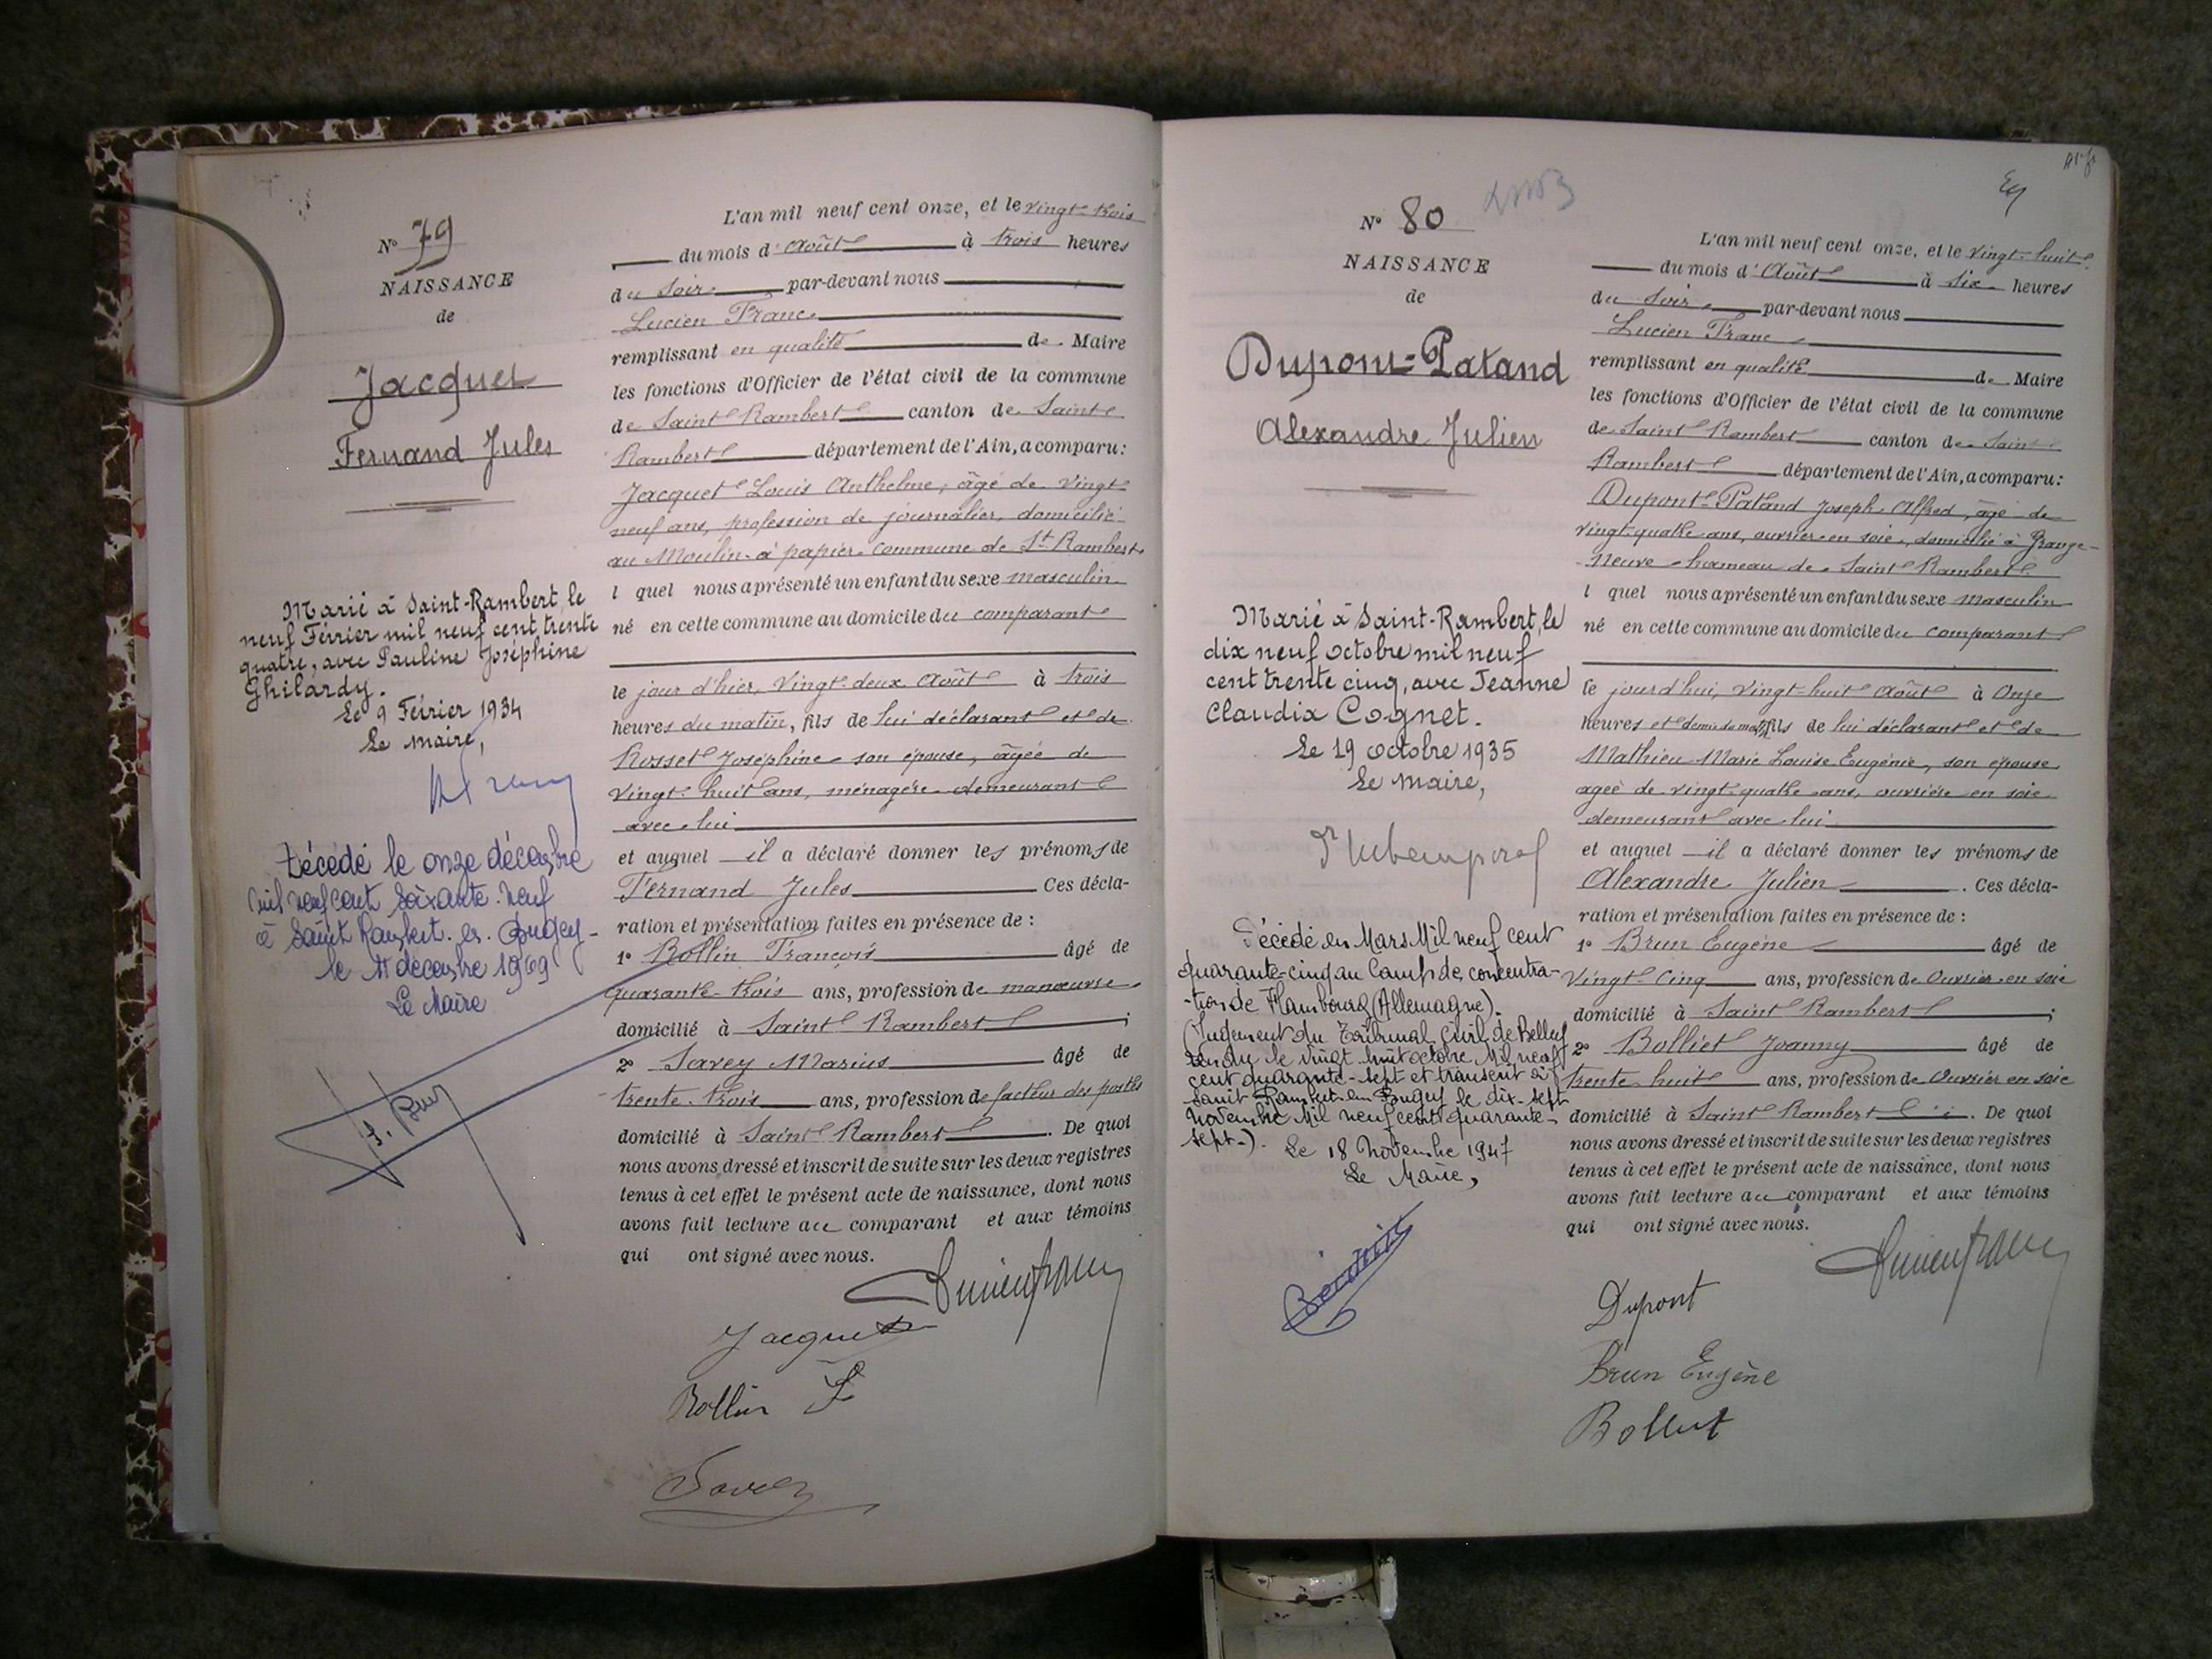 N° 79
NAISSANCE
de
Jacquet
Fernand Jules
Marié à Saint-Rambert, le
neuf Février mil neuf cent trente
quatre, avec Pauline Joséphine
Ghilardy.
Le 9 Février 1934
Le maire,
Décédé le onze décembre
mil neuf cent soixante-neuf
à Saint Rambert-en-Bugey-
le 11 décembre 1969
Le Maire
L'an mil neuf cent onze, et le vingt-trois
du mois d'Août à trois heures
du soir par-devant nous
Lucien Franc
remplissant en qualité de Maire
les fonctions d'Officier de l'état civil de la commune
de Saint Rambert canton de Saint
Rambert département de l'Ain, a comparu:
Jacquet Louis Anthelme, âgé de vingt
neuf ans, profession de journalier, domicilié
au Moulin-à papier commune de St Rambert
l quel nous a présenté un enfant du sexe masculin
né en cette commune au domicile du comparant
le jour d'hier, vingt-deux Août à trois
heures du matin, fils de lui déclarant et de
Rosset Joséphine son épouse, âgée de
vingt-huit ans, ménagère demeurant
avec lui
et auquel il a déclaré donner les prénoms de
Fernand Jules Ces décla-
ration et présentation faites en présence de :
1° Rollin François âgé de
quarante-trois ans, profession de manœuvre
domicilié à Saint Rambert ;
2° Savey Marius âgé de
trente-trois ans, profession de facteur des postes
domicilié à Saint Rambert . De quoi
nous avons dressé et inscrit de suite sur les deux registres
tenus à cet effet le présent acte de naissance, dont nous
avons fait lecture au comparant et aux témoins
qui ont signé avec nous.
Lucien Franc
Jacquet
Rollin F
Savey
N° 80
NAISSANCE
de
Dupont-Pataud
Alexandre Julien
Marié à Saint-Rambert, le
dix neuf octobre mil neuf
cent trente cinq, avec Jeanne
Claudia Cognet.
Le 19 octobre 1935
Le maire,
Décédé en Mars Mil neuf cent
quarante-cinq au Camp de concentra-
-tion de Hambourg (Allemagne).
(Jugement du Tribunal Civil de Belley
rendu le vingt huit octobre Mil neuf
cent quarante-sept et transcrit à
Saint Rambert-en-Bugey le dix-sept
Novembre Mil neuf cent quarante-
sept-).
Le 18 Novembre 1947
Le Maire,
L'an mil neuf cent onze, et le vingt-huit
du mois d'Août à six heures
du soir par-devant nous
Lucien Franc
remplissant en qualité de Maire
les fonctions d'Officier de l'état civil de la commune
de Saint Rambert canton de Saint
Rambert département de l'Ain, a comparu:
Dupont-Pataud Joseph Alfred, âgé de
vingt-quatre ans, ouvrier en soie, domicilié à Grange-
Neuve hameau de Saint Rambert
l quel nous a présenté un enfant du sexe masculin
né en cette commune au domicile du comparant
le jourd'hui, vingt-huit Août à Onze
heures et demie du matin, fils de lui déclarant et de
Mathieu Marie Louise Eugénie, son épouse
âgée de vingt-quatre ans, ouvrière en soie
demeurant avec lui
et auquel il a déclaré donner les prénoms de
Alexandre Julien . Ces décla-
ration et présentation faites en présence de :
1° Brun Eugène âgé de
vingt-cinq ans, profession de Ouvrier en soie
domicilié à Saint Rambert ;
2° Bolliet Joanny âgé de
trente-huit ans, profession de Ouvrier en soie
domicilié à Saint Rambert . De quoi
nous avons dressé et inscrit de suite sur les deux registres
tenus à cet effet le présent acte de naissance, dont nous
avons fait lecture au comparant et aux témoins
qui ont signé avec nous.
Lucien Franc
Dupont
Brun Eugène
Bolliet